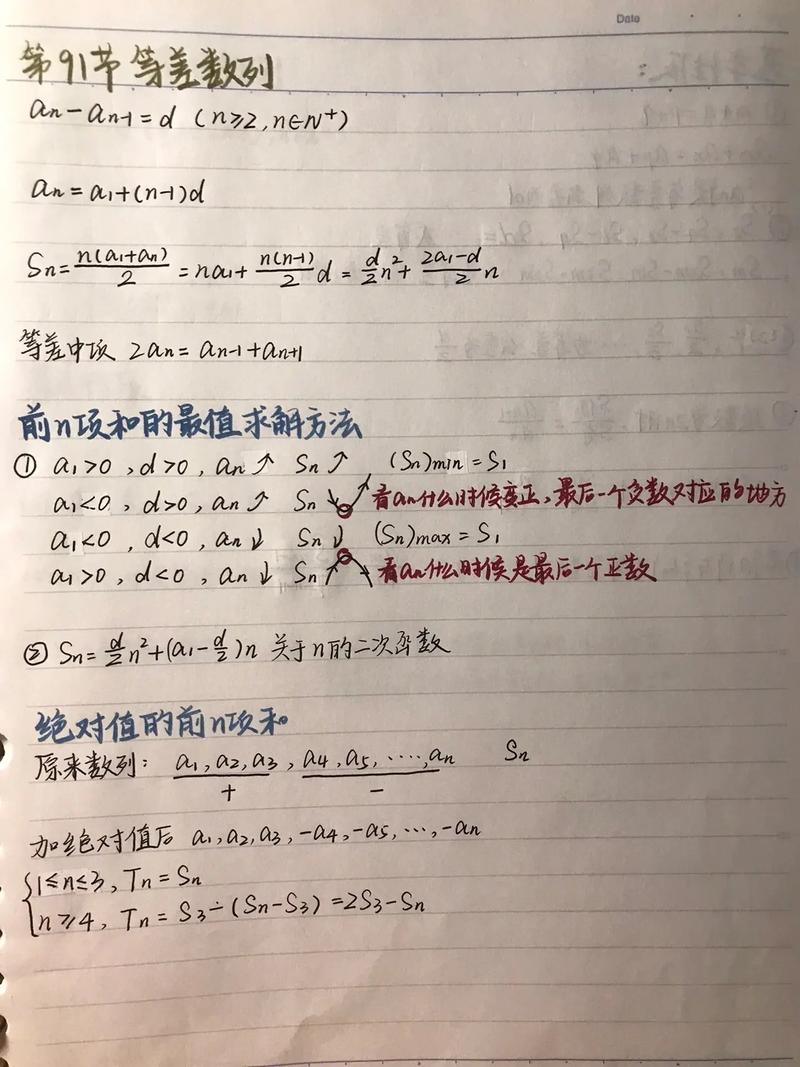 Date
第91节 等差数列
an-an-1=d (n≥2,n∈N+)
an=a1+(n-1)d
Sn=n(a1+an)/2=na1+n(n-1)/2d=d/2n²+2a1-d/2n
等差中项 2an=an-1+an+1
前n项和的最值求解方法
① a1>0,d>0,an↗ Sn↗ (Sn)min=S1
a1<0,d>0,an↗ Sn↘↗ 看an什么时候变正,最后一个负数对应的地方
a1<0,d<0,an↓ Sn↓ (Sn)max=S1
a1>0,d<0,an↓ Sn↗↘ 看an什么时候是最后一个正数
② Sn=d/2n²+(a1-d/2)n 关于n的二次函数
绝对值的前n项和
原来数列: a1,a2,a3,a4,a5,⋯,an Sn
+ -
加绝对值后 a1,a2,a3,-a4,-a5,⋯,-an
{1≤n≤3,Tn=Sn
n≥4,Tn=S3-(Sn-S3)=2S3-Sn